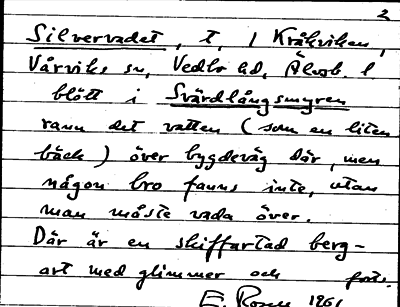 2
Silvervadet, t. / Kråkviken,
Vårviks sn, Vedbo hd, Älvsb. l
blött i Svärdlångsmyren
rann det vatten (som en liten
bäck) över bygdeväg där, men
någon bro fanns inte, utan
man måste vada över.
Där är en skiffartad berg-
art med glimmer och forts.
E. Rosen 1961